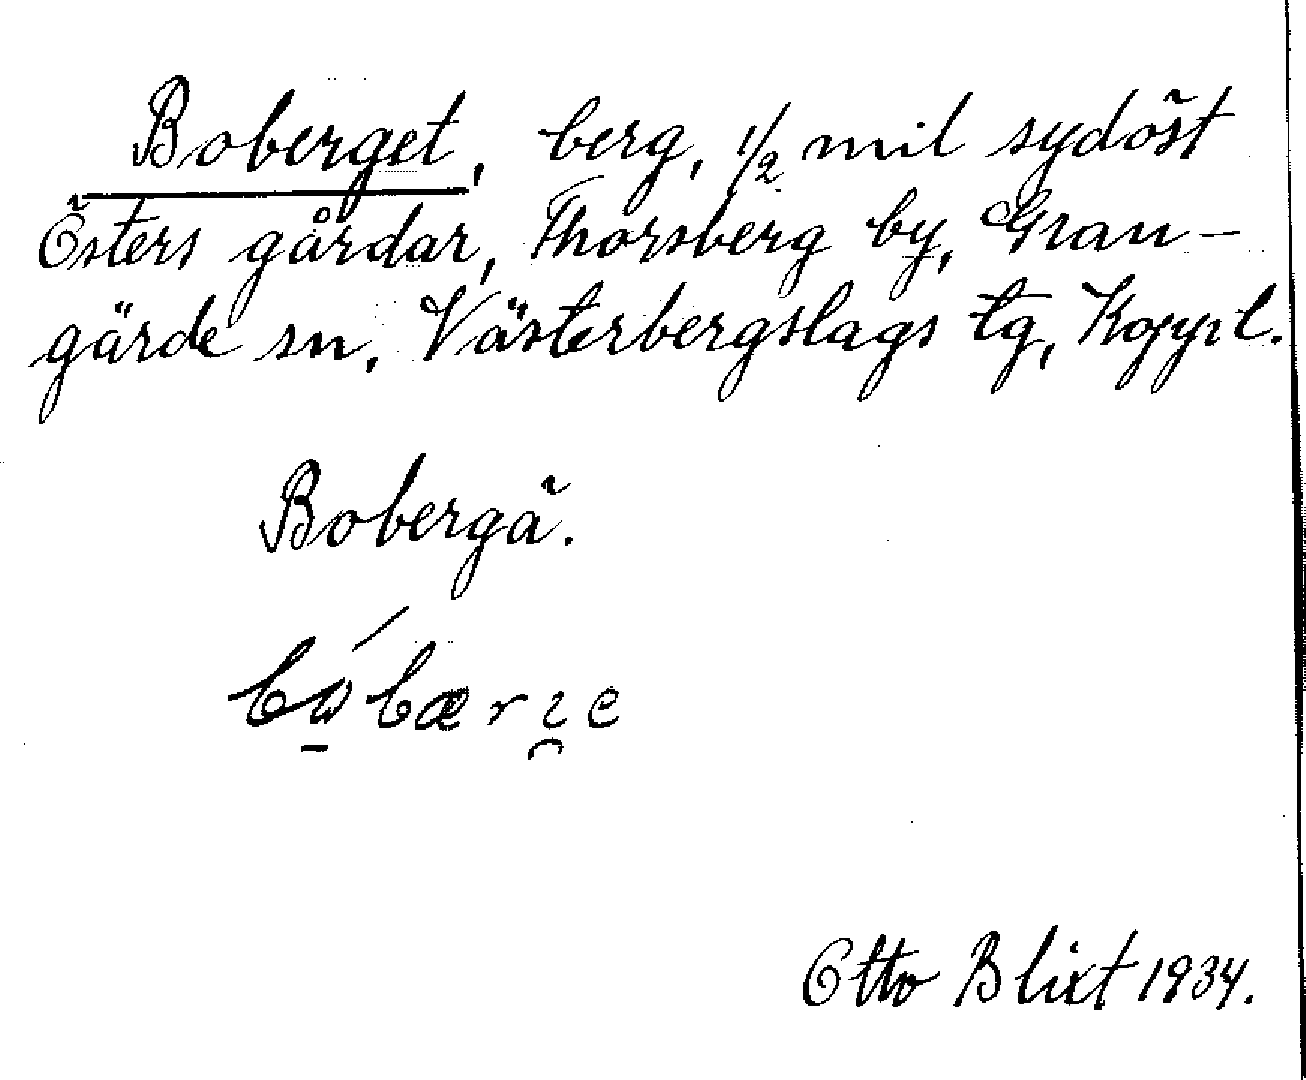 Boberget, berg, 1/2 mil sydöst
Östers gårdar, Thorsberg by, Gran-
gärde sn, Västerbergslags tg, Kopp. l.
Bobergä.
Otto Blixt 1934.